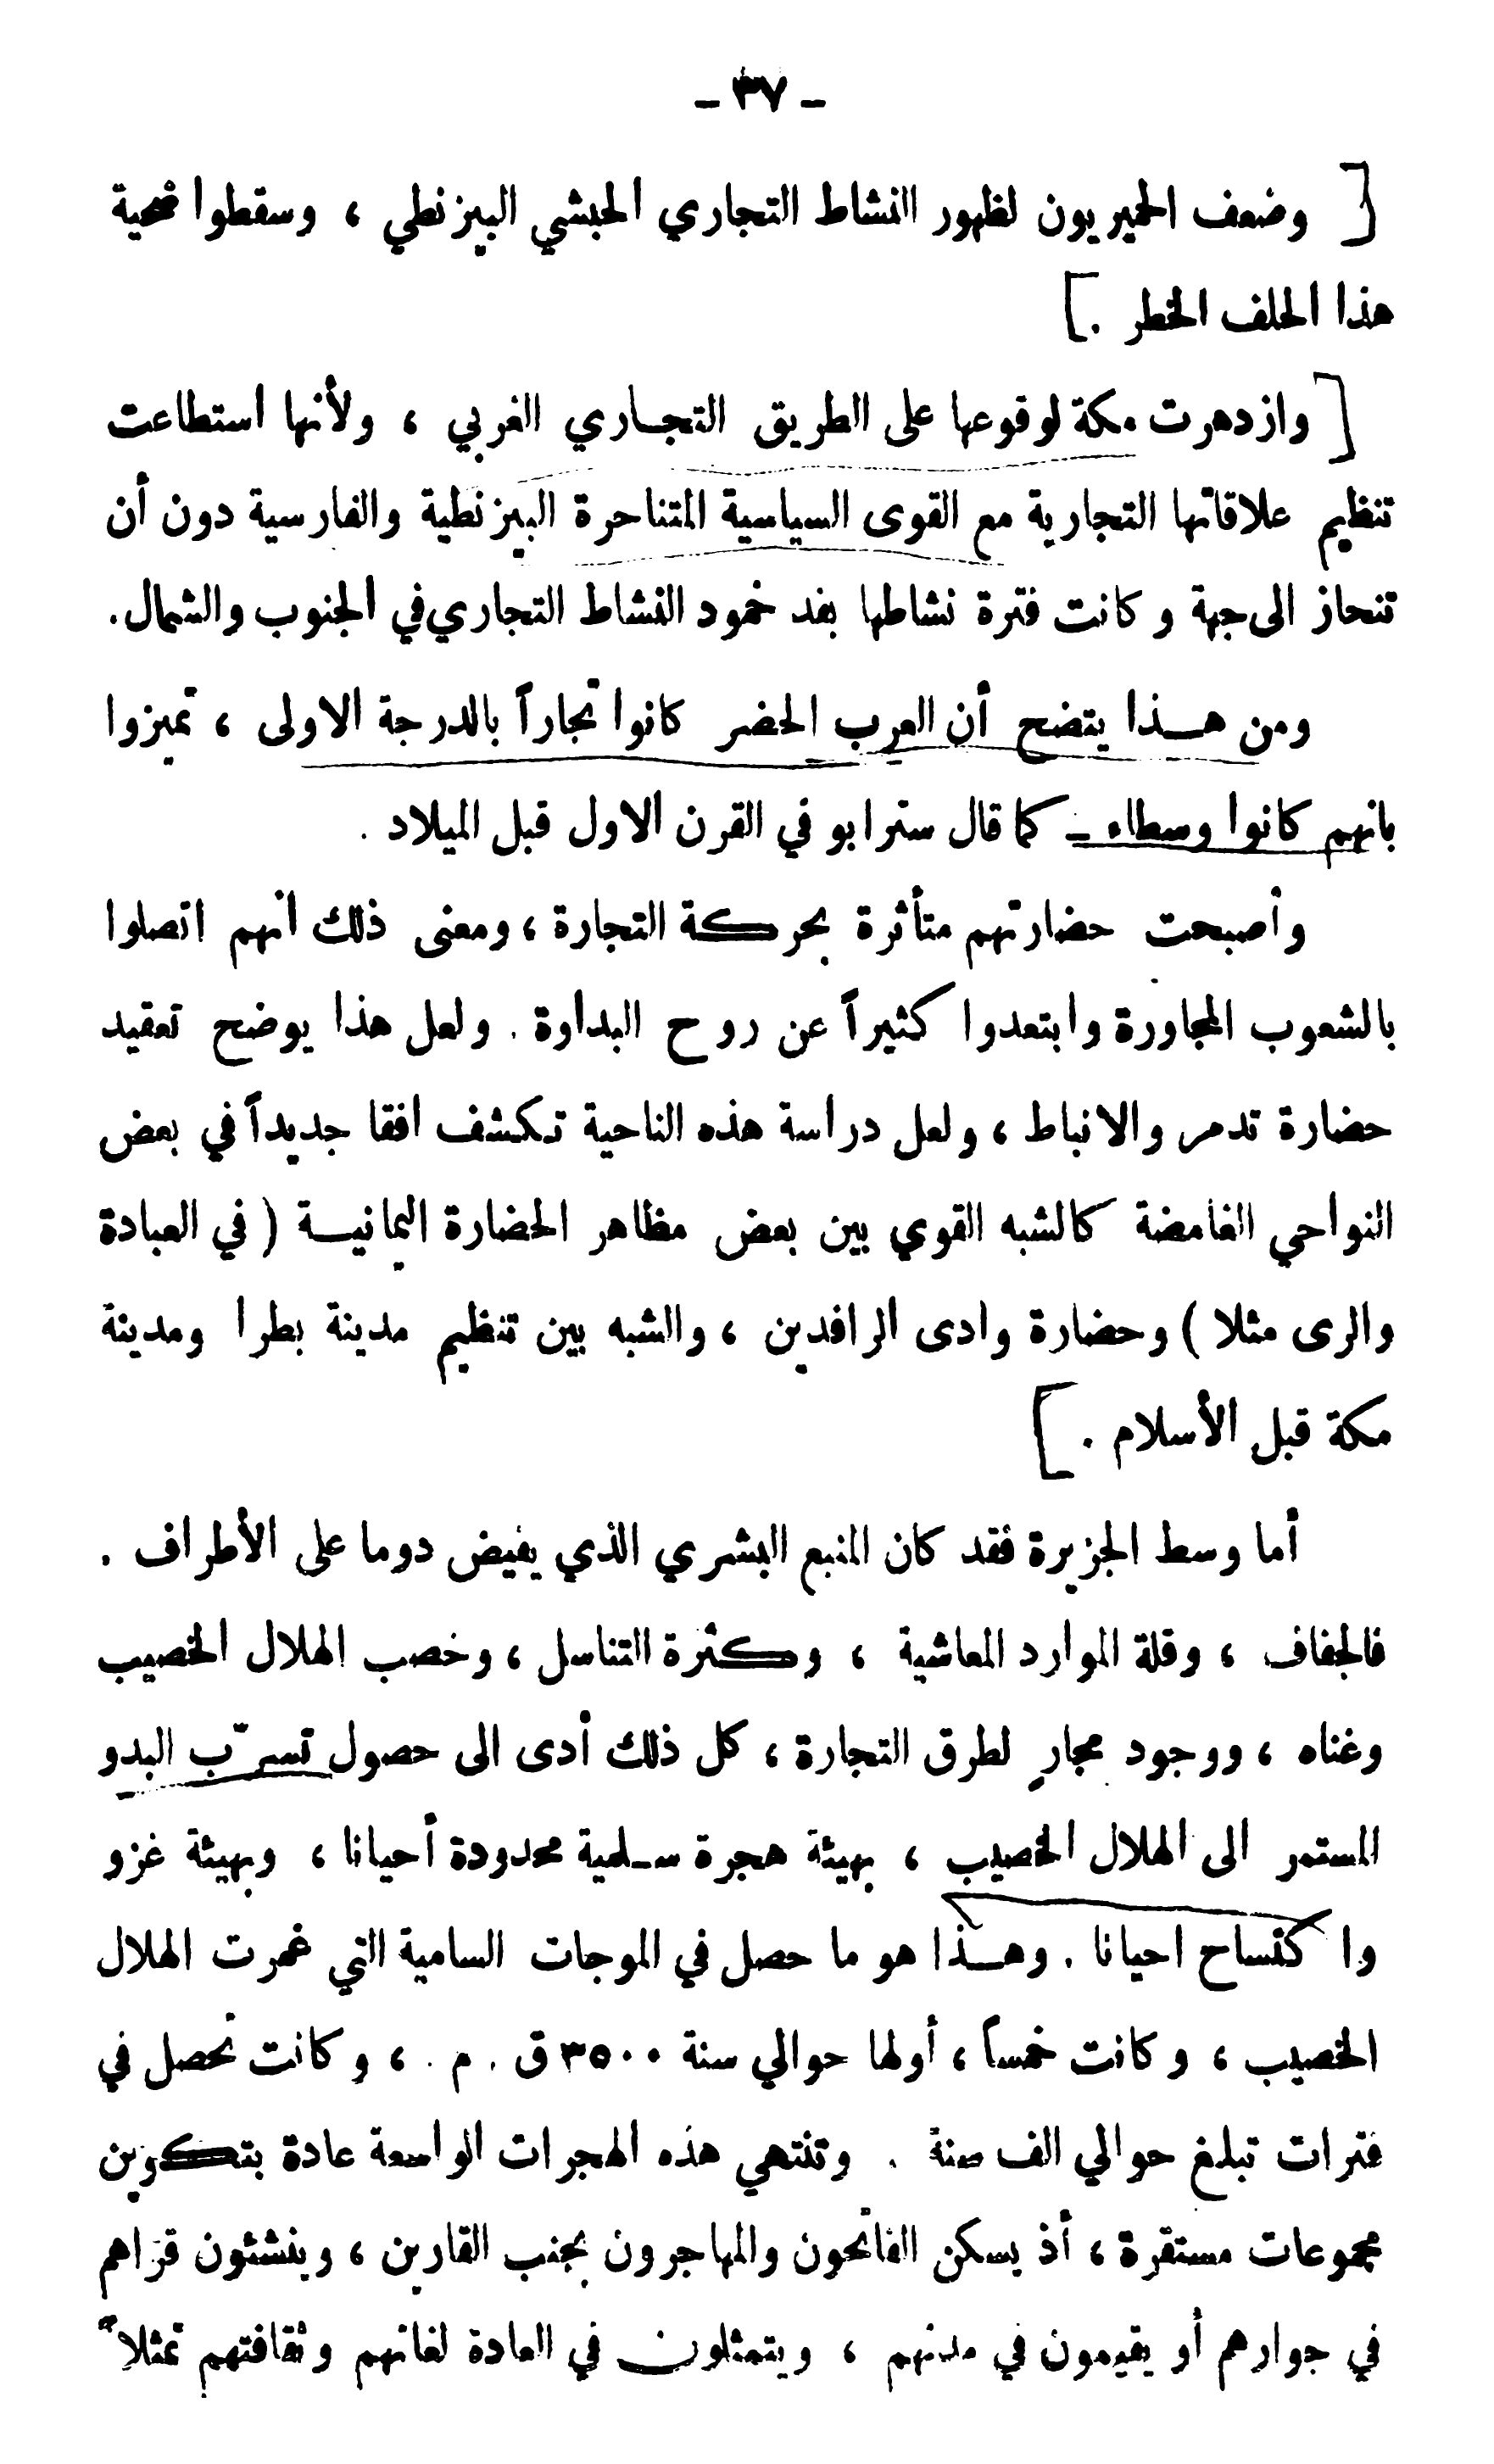 - ٣٧ -
[ وضعف الحميريون لظهور النشاط التجاري الحبشي البيزنطي ، وسقطوا ضحية
هذا الحلف الخطر . ]
[ وازدهرت مكة لوقوعها على الطريق التجـاري الغربي ، ولأنها استطاعت
تنظيم علاقاتها التجارية مع القوى السياسية المتناحرة البيزنطية والفارسية دون أن
تنحاز الى جهة وكانت فترة نشاطها بعد خمود النشاط التجاري في الجنوب والشمال.
ومن هـذا يتضح أن العرب الحضر كانوا تجاراً بالدرجة الاولى ، تميزوا
بانهم كانوا وسطاء - كما قال سترابو في القرن الاول قبل الميلاد .
وأصبحت حضارتهم متأثرة بحركة التجارة ، ومعنى ذلك انهم اتصلوا
بالشعوب المجاورة وابتعدوا كثيراً عن روح البداوة . ولعل هذا يوضح تعقيد
حضارة تدمر والانباط ، ولعل دراسة هذه الناحية تكشف افقا جديداً في بعض
النواحي الغامضة كالشبه القوي بين بعض مظاهر الحضارة اليمانيـة ( في العبادة
والرى مثلا ) وحضارة وادى الرافدين ، والشبه بين تنظيم مدينة بطرا ومدينة
مكة قبل الأسلام . ]
أما وسط الجزيرة فقد كان المنبع البشري الذي يفيض دوما على الأطراف .
فالجفاف ، وقلة الموارد المعاشية ، وكثرة التناسل ، وخصب الهلال الخصيب
وغناه ، ووجود مجارٍ لطرق التجارة ، كل ذلك أدى الى حصول تسرّب البدو
المستمر الى الهلال الخصيب ، بهيئة هجرة سـلمية محدودة أحيانا ، وبهيئة غزو
واكتساح احيانا . وهـذا هو ما حصل في الموجات السامية التي غمرت الهلال
الخصيب ، وكانت خمساً ، أولها حوالي سنة ٣٥٠٠ ق . م . ، وكانت تحصل في
فترات تبلغ حوالي الف سنة . وتنتهي هذه الهجرات الواسعة عادة بتكوين
مجموعات مستقرة ، أذ يسكن الفاتحون والمهاجرون بجنب القارين ، وينشئون قراهم
في جوارهم أو يقيمون في مدنهم ، ويتمثلون في العادة لغاتهم وثقافتهم تمثلاً